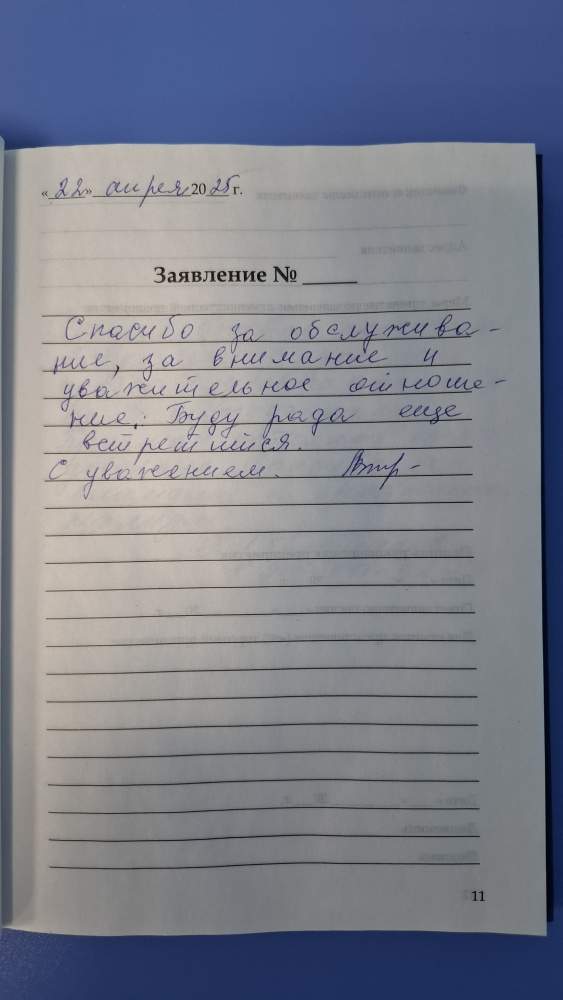 «22» апреля 2025 г.
Заявление № 
Спасибо за обслужива-
ние, за внимание и
уважительное отноше-
ние. Буду рада еще
встретится.
С уважением.
11